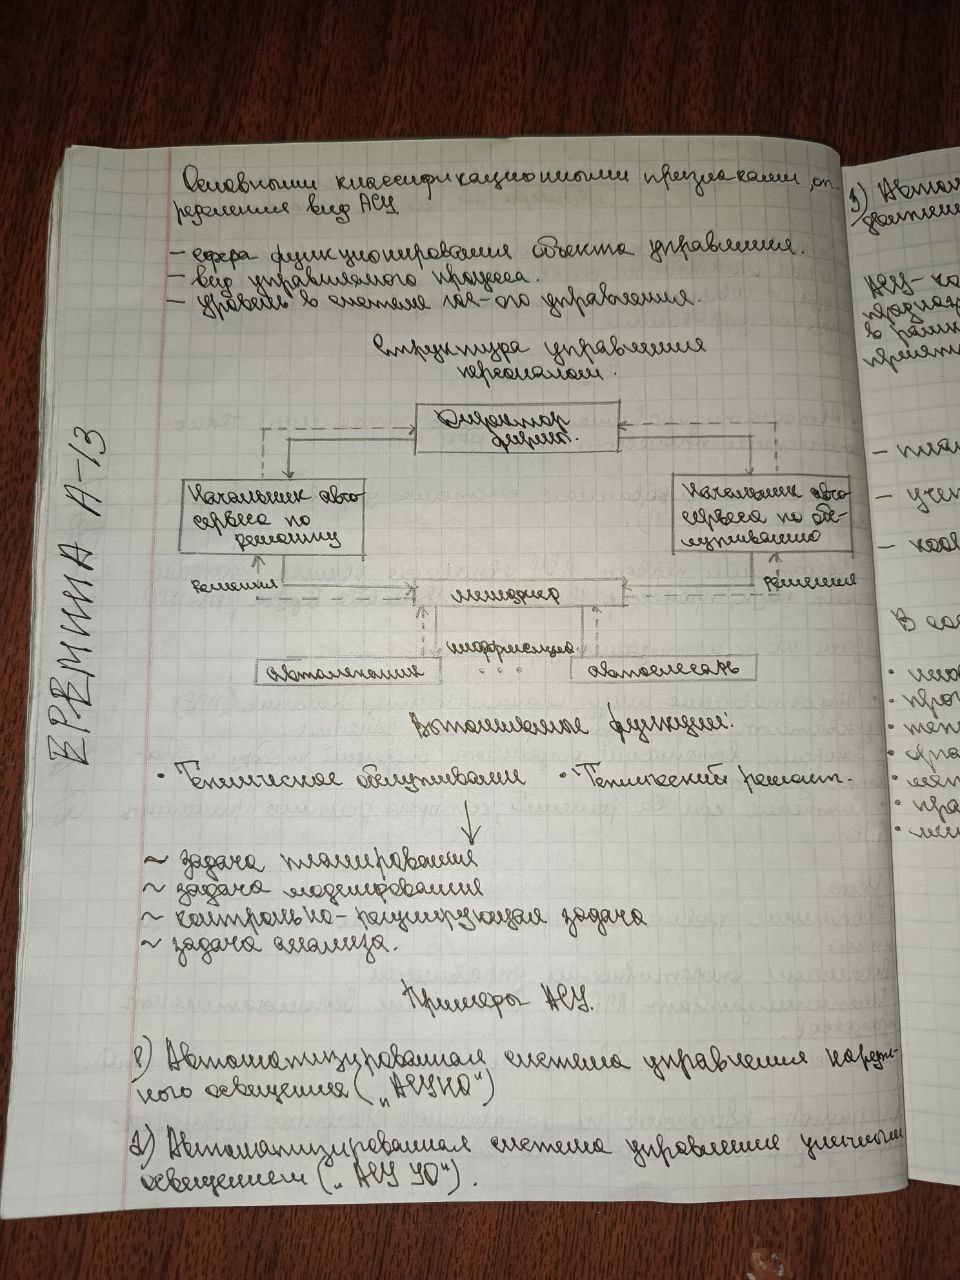 Основными классификационными признаками, оп-
ределения вид АСУ
- сфера функционирования объекта управления.
- вид управляемого процесса.
- уровень в системе гос-ого управления.
Структура управления
персоналом.
Директор
фирмы.
Начальник авто
сервеса по
ремонту
Начальник авто
сервеса по обс-
луживанию
решения
менеджер
решения
информация
автомеханик
автослесарь
Выполняемые функции:
• Техническое обслуживание • Технический ремонт.
~ задача планирования
~ задача моделирования
~ контрольно-регулирующая задача
~ задача анализа.
Примеры АСУ.
1) Автоматизированная система управления наруж-
ного освещения („АСУНО")
2) Автоматизированная система управления уличным
освещением („АСУ УО").
ЕРЕМИНА А-13
3) Автом
движен
АСУ-ка
предназ
в рамк
принят
- план
- учет
-
В сос
•
• прог
• тех
• орга
• мат
• пра
•